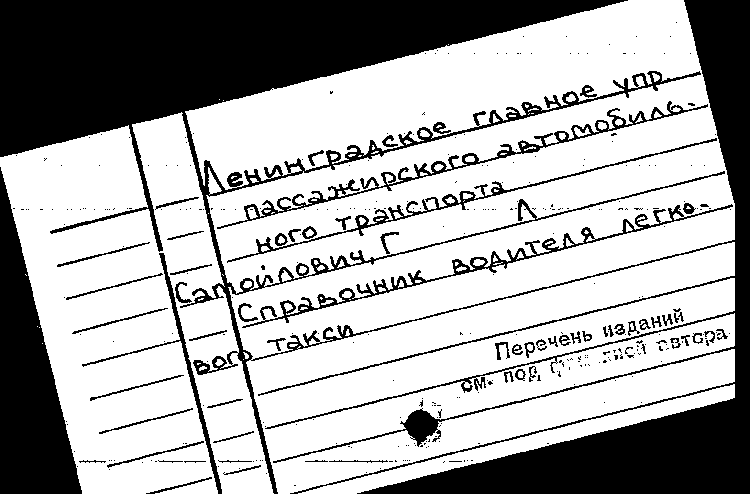 Ленинградское главное упр.
пассажирского автомобиль-
ного транспорта
Самойлович, Г Л
Справочник водителя легко-
вого такси
Перечень изданий
см. под автора